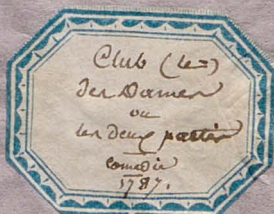 Club (le=)
des Dames
ou
les deux partis
comedie
1787.